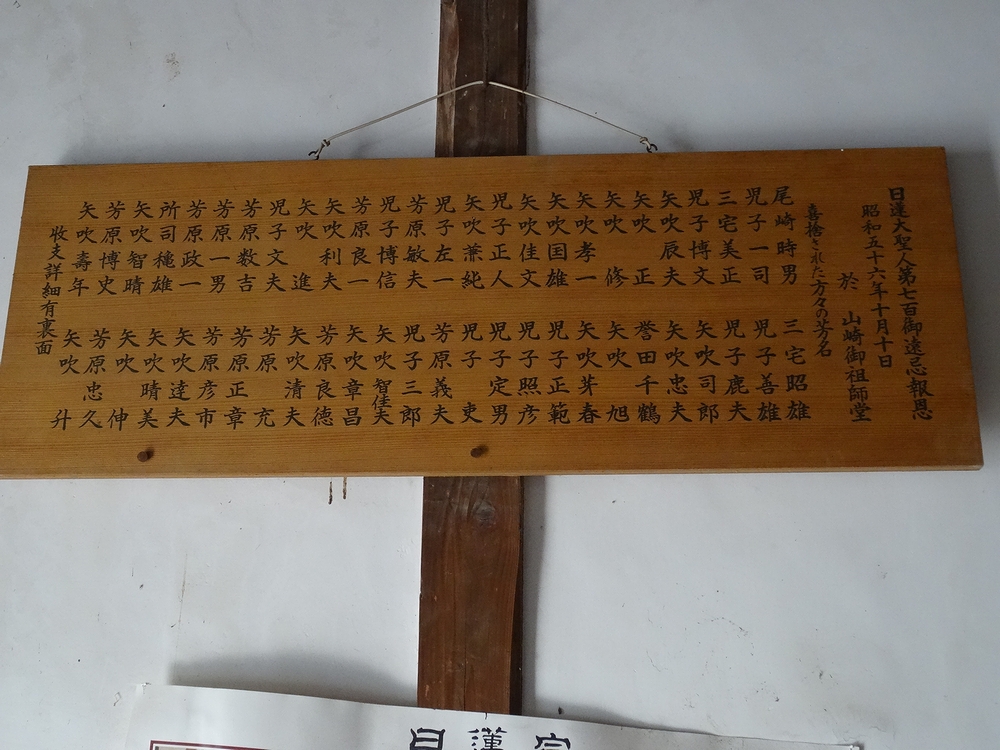 日蓮大聖人第七百御遠忌報恩
昭和五十六年十月十日
於 山崎御祖師堂
喜捨された方々の芳名
尾崎時男
児子一司
三宅美正
児子博文
矢吹辰夫
矢吹 正
矢吹 修
矢吹孝一
矢吹国雄
矢吹佳文
児子正人
矢吹兼純
児子左一
芳原敏夫
児子博信
芳原良一
矢吹利夫
矢吹 進
児子文夫
芳原数吉
芳原一男
芳原政一
所司穐雄
矢吹智晴
芳原博史
矢吹壽年
三宅昭雄
児子善雄
児子鹿夫
矢吹司郎
矢吹忠夫
誉田千鶴
矢吹 旭
矢吹芽春
児子正範
児子照彦
児子定男
児子 吏
芳原義夫
児子三郎
矢吹智佳夫
矢吹章昌
芳原良徳
矢吹清夫
芳原 充
芳原正章
芳原彦市
矢吹達夫
矢吹晴美
矢吹 仲
芳原忠久
矢吹 升
收支詳細有裏面
日蓮宗